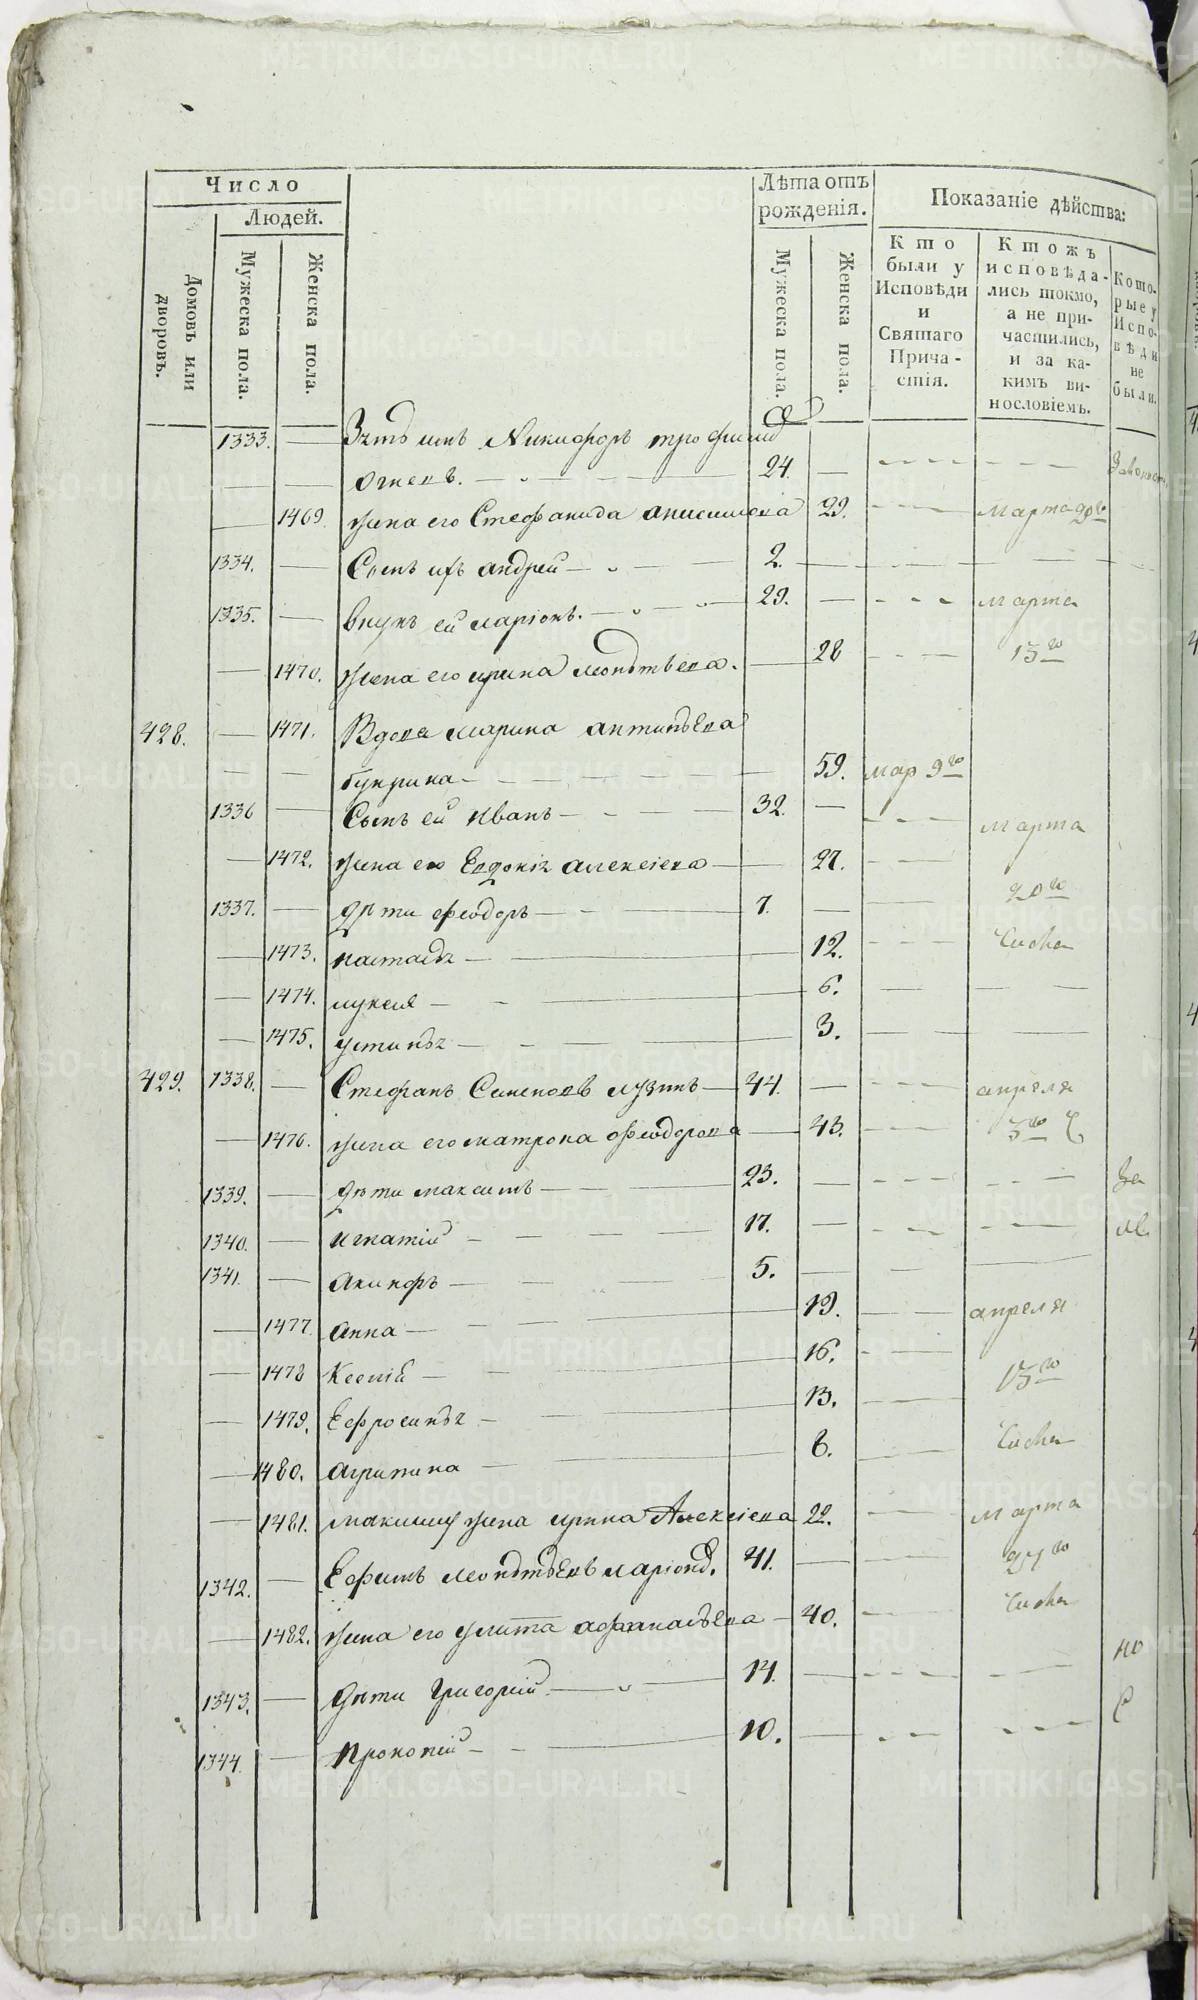 Число
Людей.
Домовъ или дворовъ.
Мужеска пола.
Женска пола.
Лѣта отъ рожденія.
Мужеска пола.
Женска пола.
Показаніе дѣйства:
Кто были у Исповѣди и Святаго Прича-стія.
Ктожъ исповѣда-лись токмо, а не при-частились, и за ка-кимъ ви-нословіемъ.
Кото-рые у Испо-вѣди не были.
1333. Зять ихъ Никифоръ трофимо
огневъ. 24.
1469. жена его Стефанида анисимова 29. марта 20го
1334. Сынъ ихъ андрей 2.
1335. внукъ ей ларіонъ. 29. марта
1470. жена его ирина леонтьева. 28 15го
428. 1471. Вдова марина антипьева
букрина 59. мар 9го
1336 Сынъ ей иванъ 32. марта
1472. жена его Евдокія алексіева 27.
1337. дѣти феодоръ 7. 20го
1473. настасья 12.
1474. лукея 6.
1475. устинья 3.
429. 1338. Стефанъ Симеоновъ лузинъ 44. апреля
1476. жена его матрона феодорова 43. 5го
1339. дѣти максимъ 23.
1340. игнатій 17.
1341. акинфъ 5.
1477. анна 19. апреля
1478 Ксенія 16. 15го
1479. Ефросинья 13.
1480. агрипина 8.
1481. максиму жена ирина Алексіева 22. марта
1342. Ефимъ леонтьевъ ларіонo. 41. 27го
1482. жена его улита афанасьева 40.
1343. дѣти григорій 14.
1344. прокопій 10.
METRIKI.GASO-URAL.RU